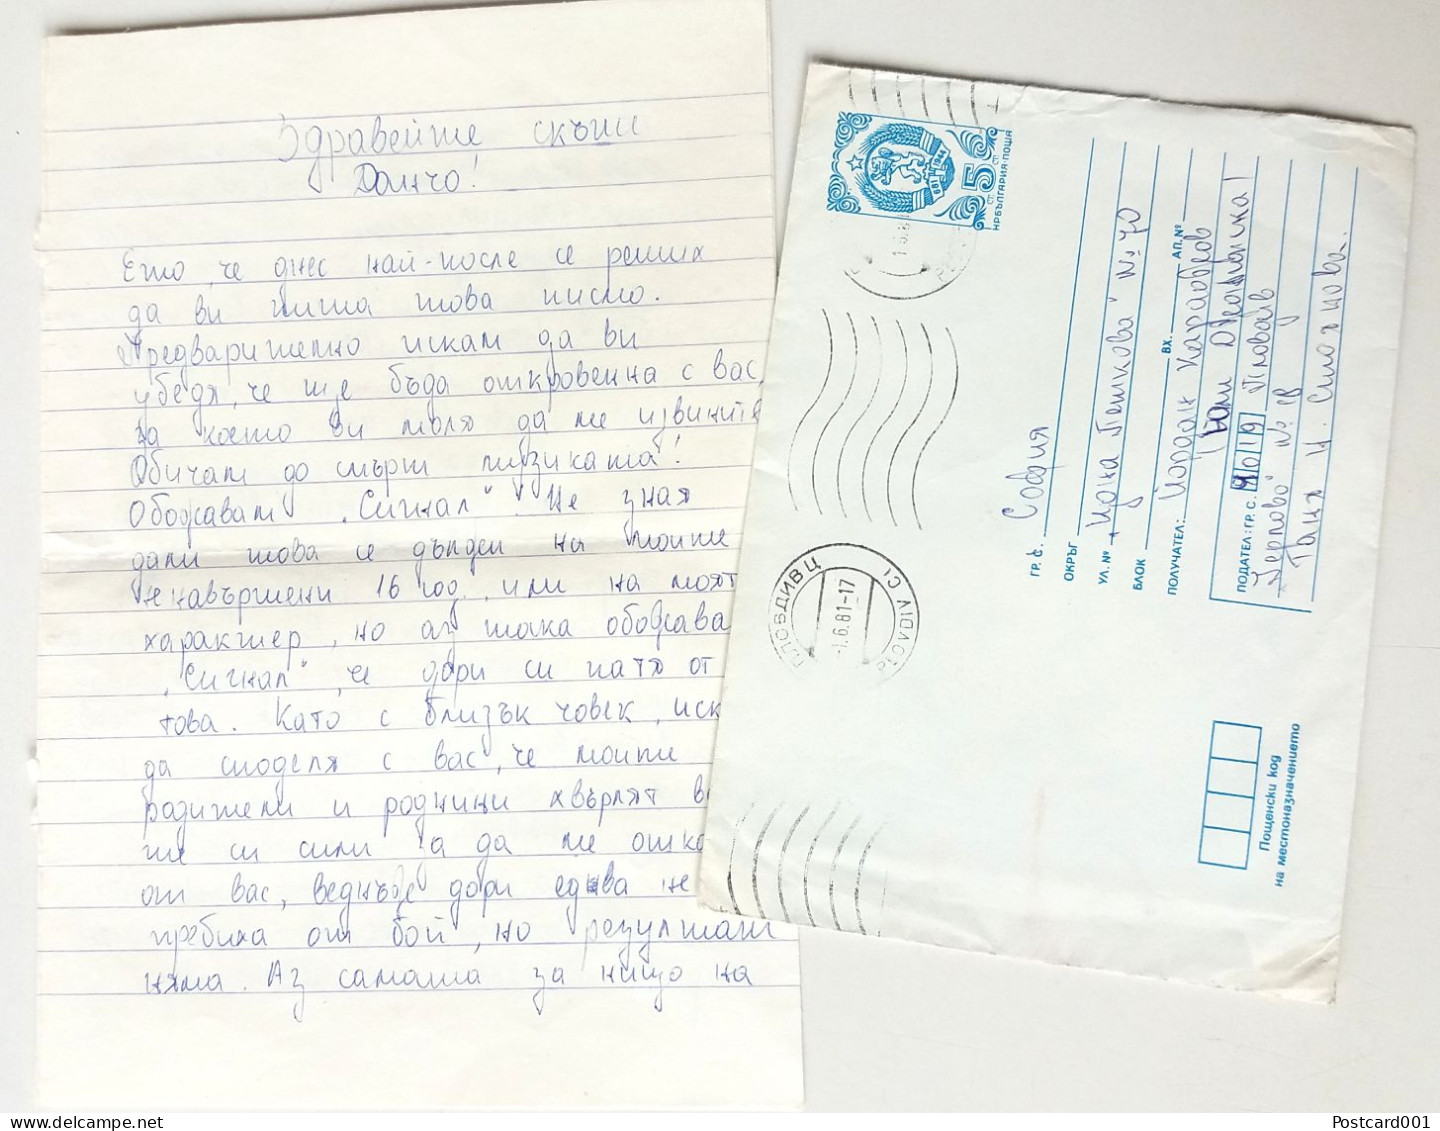 Здравейте скъпи
Данчо!
Ето, че днес най-после се реших
да ви пиша това писмо.
Предварително искам да ви
убедя, че ще бъда откровенна с вас,
за което ви моля да ме извините
Обичам до смърт музиката!
Обожавам „Сигнал“! Не зная
дали това се дължи на моите
ненавършени 16 год., или на моят
характер, но аз така обожава
„Сигнал“, че дори си патя от
това. Като с близък човек, иск
да споделя с вас, че моите
родители и роднини хвърлят в
ки си сили за да ме отка
от вас, веднъж дори едва не
пребиха от бой, но резултат
няма. Аз самата за нищо на
5 СТ. СТ.
НРБЪЛГАРИЯ·ПОЩА
681 1944
ГР. С. София
ОКРЪГ
УЛ. № „Цола Петкова“ № 70
БЛОК ВХ. АП. №
ПОЛУЧАТЕЛ: Йордан Караджов
ПОДАТЕЛ: ГР. С. Пловдив
Таня Н.
Пощенски код
на местоназначението
ПЛОВДИВ Ц
-1.6.81-17
PLOVDIV CI
Postcard001